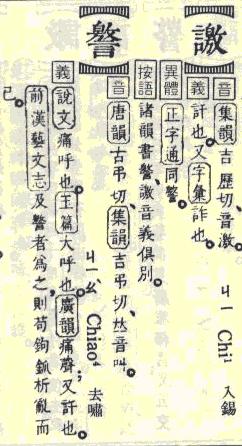 譤
音 集韻吉歷切、音激。 ㄐㄧ Chi¹ 入錫
義 訐也。又字彙詐也。
異體 正字通同譥。
按語 諸韻書譥、譤音義俱別。
譥
音 唐韻古弔切、集韻吉弔切、𠀤音叫。 ㄐㄧㄠˋ Chiao⁴ 去嘯
義 說文痛呼也。玉篇大呼也。廣韻痛聲；又訐也。
前漢藝文志及譥者爲之、則苟鉤鈲析亂而
已。